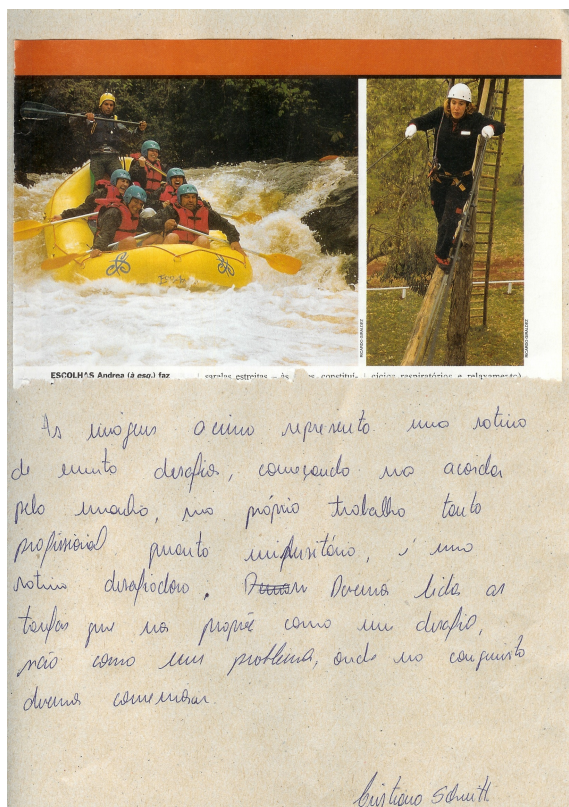 RICARDO GIRALDEZ
RICARDO GIRALDEZ
ESCOLHAS Andrea (à esq.) faz
saralas estreitas – às constitui-
cícios respiratórios e relaxamento)
As imagens acima represento uma rotina
de muito desafio, começando no acordar
pela manhã, no próprio trabalho tanto
profissional quanto universitário, é uma
rotina desafiadora. Devemos lidar as
tarefas que nos propõe como um desafio,
não como um problema, onde na conquista
devemos comemorar.
Cristiano Schmitt